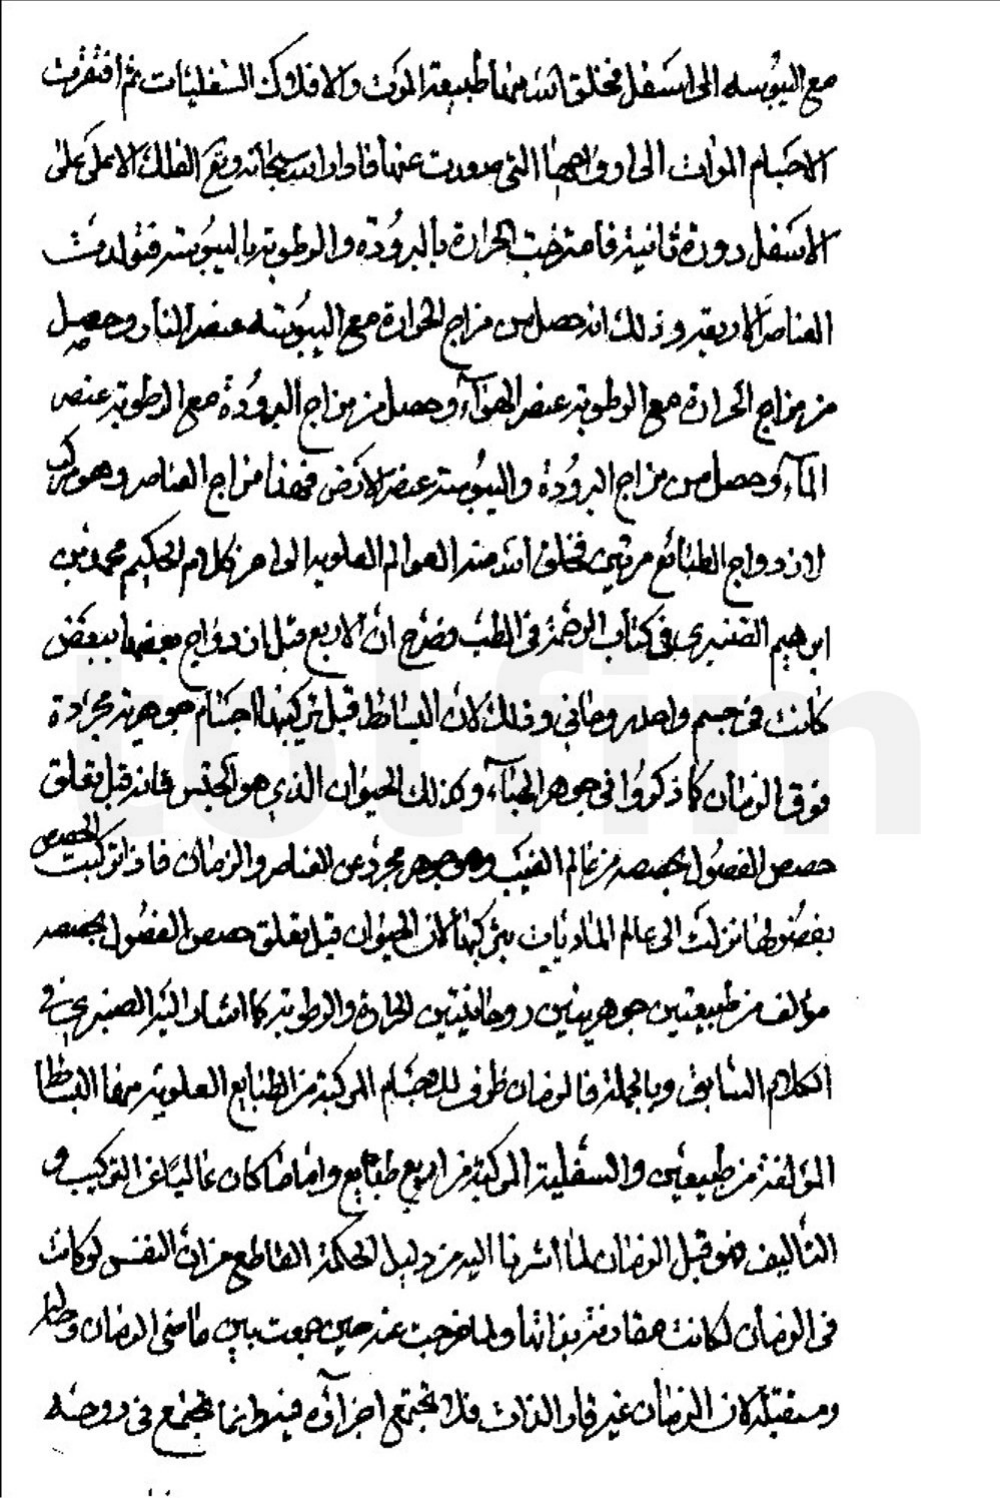 مع اليبوسه الى اسفل فخلق الله منها طبيعة الموت والافلاك السفليات ثم افتقرت
الاجسام الموات الى ارواحها التى صدرت عنها فادار الله سبحانه وتع الفلك الاعلى على
الاسفل دورة ثانية فامتزجت الحرارة بالبرودة والرطوبة باليبوسة فتولدت
العناصر الاربعة وذلك انه حصل من مزاج الحرارة مع اليبوسة عنصر النار وحصل
من مزاج الحرارة مع الرطوبة عنصر الهوآء وحصل من مزاج البرودة مع الرطوبة عنصر
المآء وحصل من مزاج البرودة واليبوسة عنصر الارض فهذا مزاج العناصر وهو مركب
لازدواج الطبائع مرتين فخلق الله منه العوالم العلوية الى اخر كلام الحكيم محمد بن
ابرهيم الصنبرى فى كتاب الرحمة فى الطب فصرح ان الاربع قبل ازدواج بعضها ببعض
كانت فى جسم واحد روحانى وذلك لان البسائط قبل تركيبها اجسام جوهرية مجردة
فوق الزمان كما ذكروا فى جوهر الهبآء وكذلك الحيوان الذي هو الجنس فانه قبل تعلق
حصص الفصول بحصصه من عالم الغيب وهو جوهر مجرد عن العناصر والزمان فاذا تركبت الحصص
بفصولها نزلت الى عالم الماديات بتركبها لان الحيوان قبل تعلق حصص الفصول بحصصه
مؤلف من طبيعتين جوهريتين روحانيتين الحرارة والرطوبة كما اشار اليه الصنبرى فى
الكلام السابق وبالجملة فالزمان ظرف للاجسام المركبة من الطبايع العلوية منها البسائط
المؤلفة من طبيعتين والسفلية المركبة من اربع طبايع واما ما كان عاليا عن التركيب و
التأليف فهو قبل الزمان لما اشرنا اليه من دليل الحكمة القاطع من ان النفس لو كانت
فى الزمان لكانت مقارنة بذاتها ولما خرجت عنه حين جمعت بين ماضى الزمان وحاله
ومستقبله لان الزمان غير قار الذات فلا تجتمع اجزآؤه فيه وانما تجتمع فى روحه